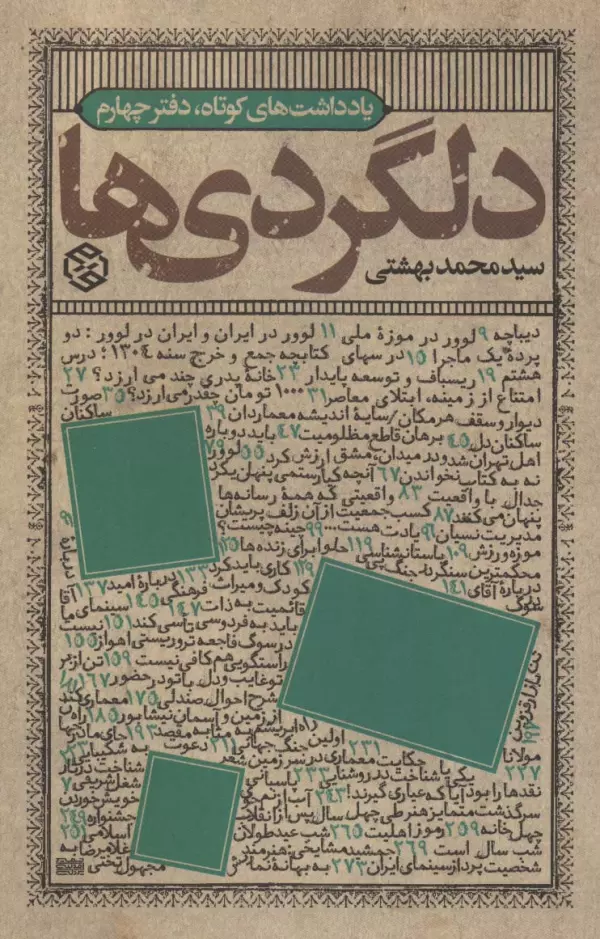 یادداشت‌های کوتاه، دفتر چهارم
دلگردی‌ها
سید محمد بهشتی
دیباچه ۹ لوور در موزهٔ ملی ۱۱ لوور در ایران و ایران در لوور : دو
پرده یک ماجرا ۱۵ درسهای کتابچه جمع و خرج سنه ۱۳۰۴؛ درس
هشتم ۱۹ ریسباف و توسعه پایدار ۲۳ خانهٔ پدری چند می ارزد؟ ۲۷
امتناع از زمینه، ابتلای معاصر ۳۱ ۱۰۰۰ تومان چقدر می‌ارزد؟ ۳۵ صورت
دیوار و سقف هر مکان/سایهٔ اندیشه معماردان ۳۹ ساکنان
ساکنان دل ۴۵ برهان قاطع مظلومیت ۴۷ باید دوباره
اهل تهران شد و در میدان، مشق ارزش کرد ۵۵ لوور ۷۹
نه به کتاب نخواندن ۶۷ آنچه کیارستمی پنهان نکرد
جدال با واقعیت ۸۳ واقعیتی که همهٔ رسانه‌ها
پنهان می‌کنند ۸۷ کسب جمعیت از آن زلف پریشان
مدیریت نسیان ۹۱ یادت هست... ۹۹ چینه چیست؟
موزه و رزش ۱۰۹ باستانشناسی ۱۱۹ حلوا برای زنده‌ها ۱۲۵
محکمترین سنگر در جنگ پی ۱۲۹ کاری باید کرد ۱۳۳ دربارهٔ امید ۱۳۷
دربارهٔ آقای ۱۴۱ کودک و میراث فرهنگی ۱۴۵ سینمای ما
سوگ قائمیت به ذات ۱۴۷
باید به فردوسی تأسی کند ۱۵۱ نیست
در سوگ فاجعه تروریستی اهواز ۱۵۵
راستگویی هم کافی نیست ۱۵۹ تن از هر
تو غایب و دل با تو در حضور ۱۶۷
شرح احوال صندلی ۱۷۵ معماری کند
از زمین و آسمان نیشابور ۱۸۵ راه
راه ابریشم به مثابه مقصد ۱۹۳ جای مادرها
اولین جنگ جهانی ۲۱۱ دعوت به شکیبایی ۲۲۳
مولانا ۲۳۱ حکایت معماری در سرزمین شعر
۲۲۷ یکی پا شناخت در روشنایی ۲۳۳ شناخت در تار
نقدها را بود آیا که عیاری گیرند! ۲۴۳ پاسبانی شغل شریفی
سرگذشت متمایز هنر طی چهل سال پس از انقلاب خویش خوردن
چهل خانه ۲۵۹ رموز اهلیت ۲۶۵ شب عید طولانی جشنواره ۲۴۹
شب سال است ۲۶۹ جمشید مشایخی: هنرمند اسلامی ۲۵۱
شخصیت پرداز سینمای ایران ۲۷۳ به بهانهٔ نمایش غلامرضا به
مجهول تختی